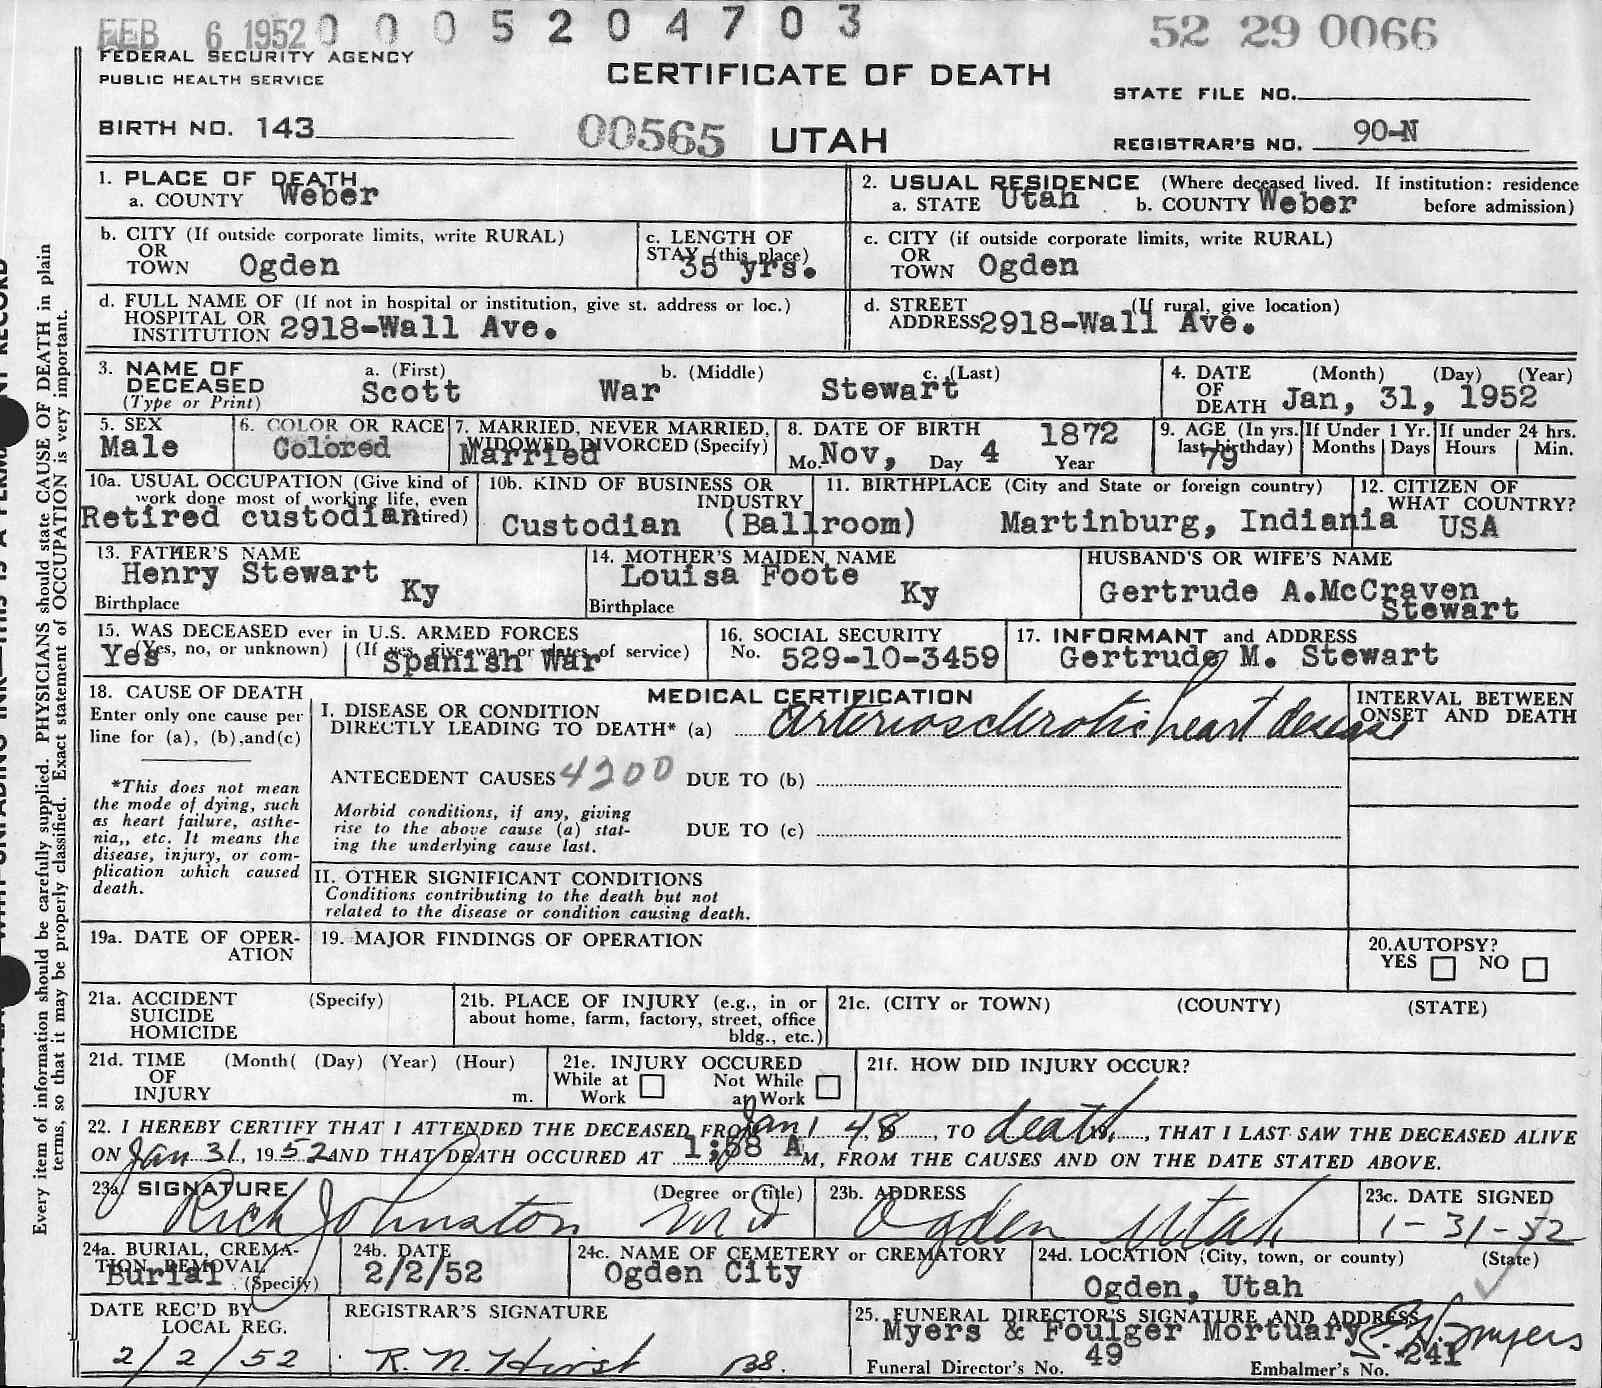 FEB 6 1952 0 0 0 5 2 0 4 7 0 3 52 29 0066
FEDERAL SECURITY AGENCY
PUBLIC HEALTH SERVICE
CERTIFICATE OF DEATH
STATE FILE NO.
BIRTH NO. 143 00565 UTAH
REGISTRAR'S NO. 90-N
1. PLACE OF DEATH
a. COUNTY Weber
2. USUAL RESIDENCE (Where deceased lived. If institution: residence
a. STATE Utah b. COUNTY Weber before admission)
b. CITY (If outside corporate limits, write RURAL)
OR
TOWN Ogden
c. LENGTH OF
STAY (this place)
35 yrs.
c. CITY (if outside corporate limits, write RURAL)
OR
TOWN Ogden
d. FULL NAME OF (If not in hospital or institution, give st. address or loc.)
HOSPITAL OR
INSTITUTION 2918-Wall Ave.
d. STREET (If rural, give location)
ADDRESS 2918-Wall Ave.
3. NAME OF
DECEASED
(Type or Print)
a. (First) b. (Middle) c. (Last)
Scott War Stewart
4. DATE (Month) (Day) (Year)
OF
DEATH Jan, 31, 1952
5. SEX
Male
6. COLOR OR RACE
Colored
7. MARRIED, NEVER MARRIED,
WIDOWED DIVORCED (Specify)
Married
8. DATE OF BIRTH 1872
Mo. Nov, Day 4 Year
9. AGE (In yrs.
last birthday)
79
If Under 1 Yr.
Months Days
If under 24 hrs.
Hours Min.
10a. USUAL OCCUPATION (Give kind of
work done most of working life, even
Retired custodian tired)
10b. KIND OF BUSINESS OR
INDUSTRY
Custodian (Ballroom)
11. BIRTHPLACE (City and State or foreign country)
Martinburg, Indiania
12. CITIZEN OF
WHAT COUNTRY?
USA
13. FATHER'S NAME
Henry Stewart
Birthplace Ky
14. MOTHER'S MAIDEN NAME
Louisa Foote
Birthplace Ky
HUSBAND'S OR WIFE'S NAME
Gertrude A.McCraven
Stewart
15. WAS DECEASED ever in U.S. ARMED FORCES
(Yes, no, or unknown) (If yes, give war or dates of service)
Yes Spanish War
16. SOCIAL SECURITY
No. 529-10-3459
17. INFORMANT and ADDRESS
Gertrude M. Stewart
18. CAUSE OF DEATH
Enter only one cause per
line for (a), (b), and (c)
*This does not mean
the mode of dying, such
as heart failure, asthe-
nia,, etc. It means the
disease, injury, or com-
plication which caused
death.
MEDICAL CERTIFICATION
I. DISEASE OR CONDITION
DIRECTLY LEADING TO DEATH* (a) Arteriosclerotic heart disease
INTERVAL BETWEEN
ONSET AND DEATH
ANTECEDENT CAUSES 4200 DUE TO (b)
Morbid conditions, if any, giving
rise to the above cause (a) stat-
ing the underlying cause last.
DUE TO (c)
II. OTHER SIGNIFICANT CONDITIONS
Conditions contributing to the death but not
related to the disease or condition causing death.
19a. DATE OF OPER-
ATION
19. MAJOR FINDINGS OF OPERATION
20. AUTOPSY?
YES NO
21a. ACCIDENT (Specify)
SUICIDE
HOMICIDE
21b. PLACE OF INJURY (e.g., in or
about home, farm, factory, street, office
bldg., etc.)
21c. (CITY or TOWN) (COUNTY) (STATE)
21d. TIME (Month( (Day) (Year) (Hour)
OF
INJURY m.
21e. INJURY OCCURED
While at Not While
Work at Work
21f. HOW DID INJURY OCCUR?
22. I HEREBY CERTIFY THAT I ATTENDED THE DECEASED FROM Jan 1 48, TO death 19, THAT I LAST SAW THE DECEASED ALIVE
ON Jan 31, 1952 AND THAT DEATH OCCURED AT 1;58 A M, FROM THE CAUSES AND ON THE DATE STATED ABOVE.
23a. SIGNATURE (Degree or title)
Rich Johnston MD
23b. ADDRESS
Ogden Utah
23c. DATE SIGNED
1-31-52
24a. BURIAL, CREMA-
TION REMOVAL
Burial (Specify)
24b. DATE
2/2/52
24c. NAME OF CEMETERY or CREMATORY
Ogden City
24d. LOCATION (City, town, or county) (State)
Ogden, Utah
DATE REC'D BY
LOCAL REG.
2/2/52
REGISTRAR'S SIGNATURE
R. N. Hirst
25. FUNERAL DIRECTOR'S SIGNATURE AND ADDRESS
Myers & Foulger Mortuary Myers
Funeral Director's No. 49 Embalmer's No. 241
Every item of information should be carefully supplied. PHYSICIANS should state CAUSE OF DEATH in plain
terms, so that it may be properly classified. Exact statement of OCCUPATION is very important.